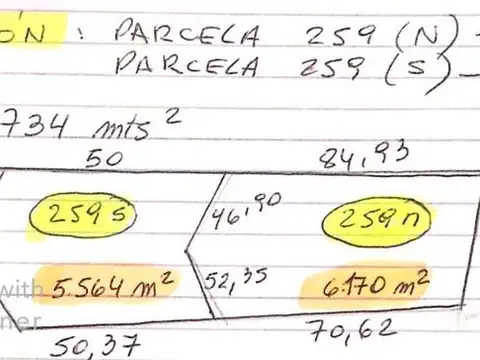 ÓN : PARCELA 259 (N) -
PARCELA 259 (S) -
734 mts²
50 84,93
259 s 46,90 259 n
with 5.564 m² 52,35 6.170 m²
ner
50,37 70,62